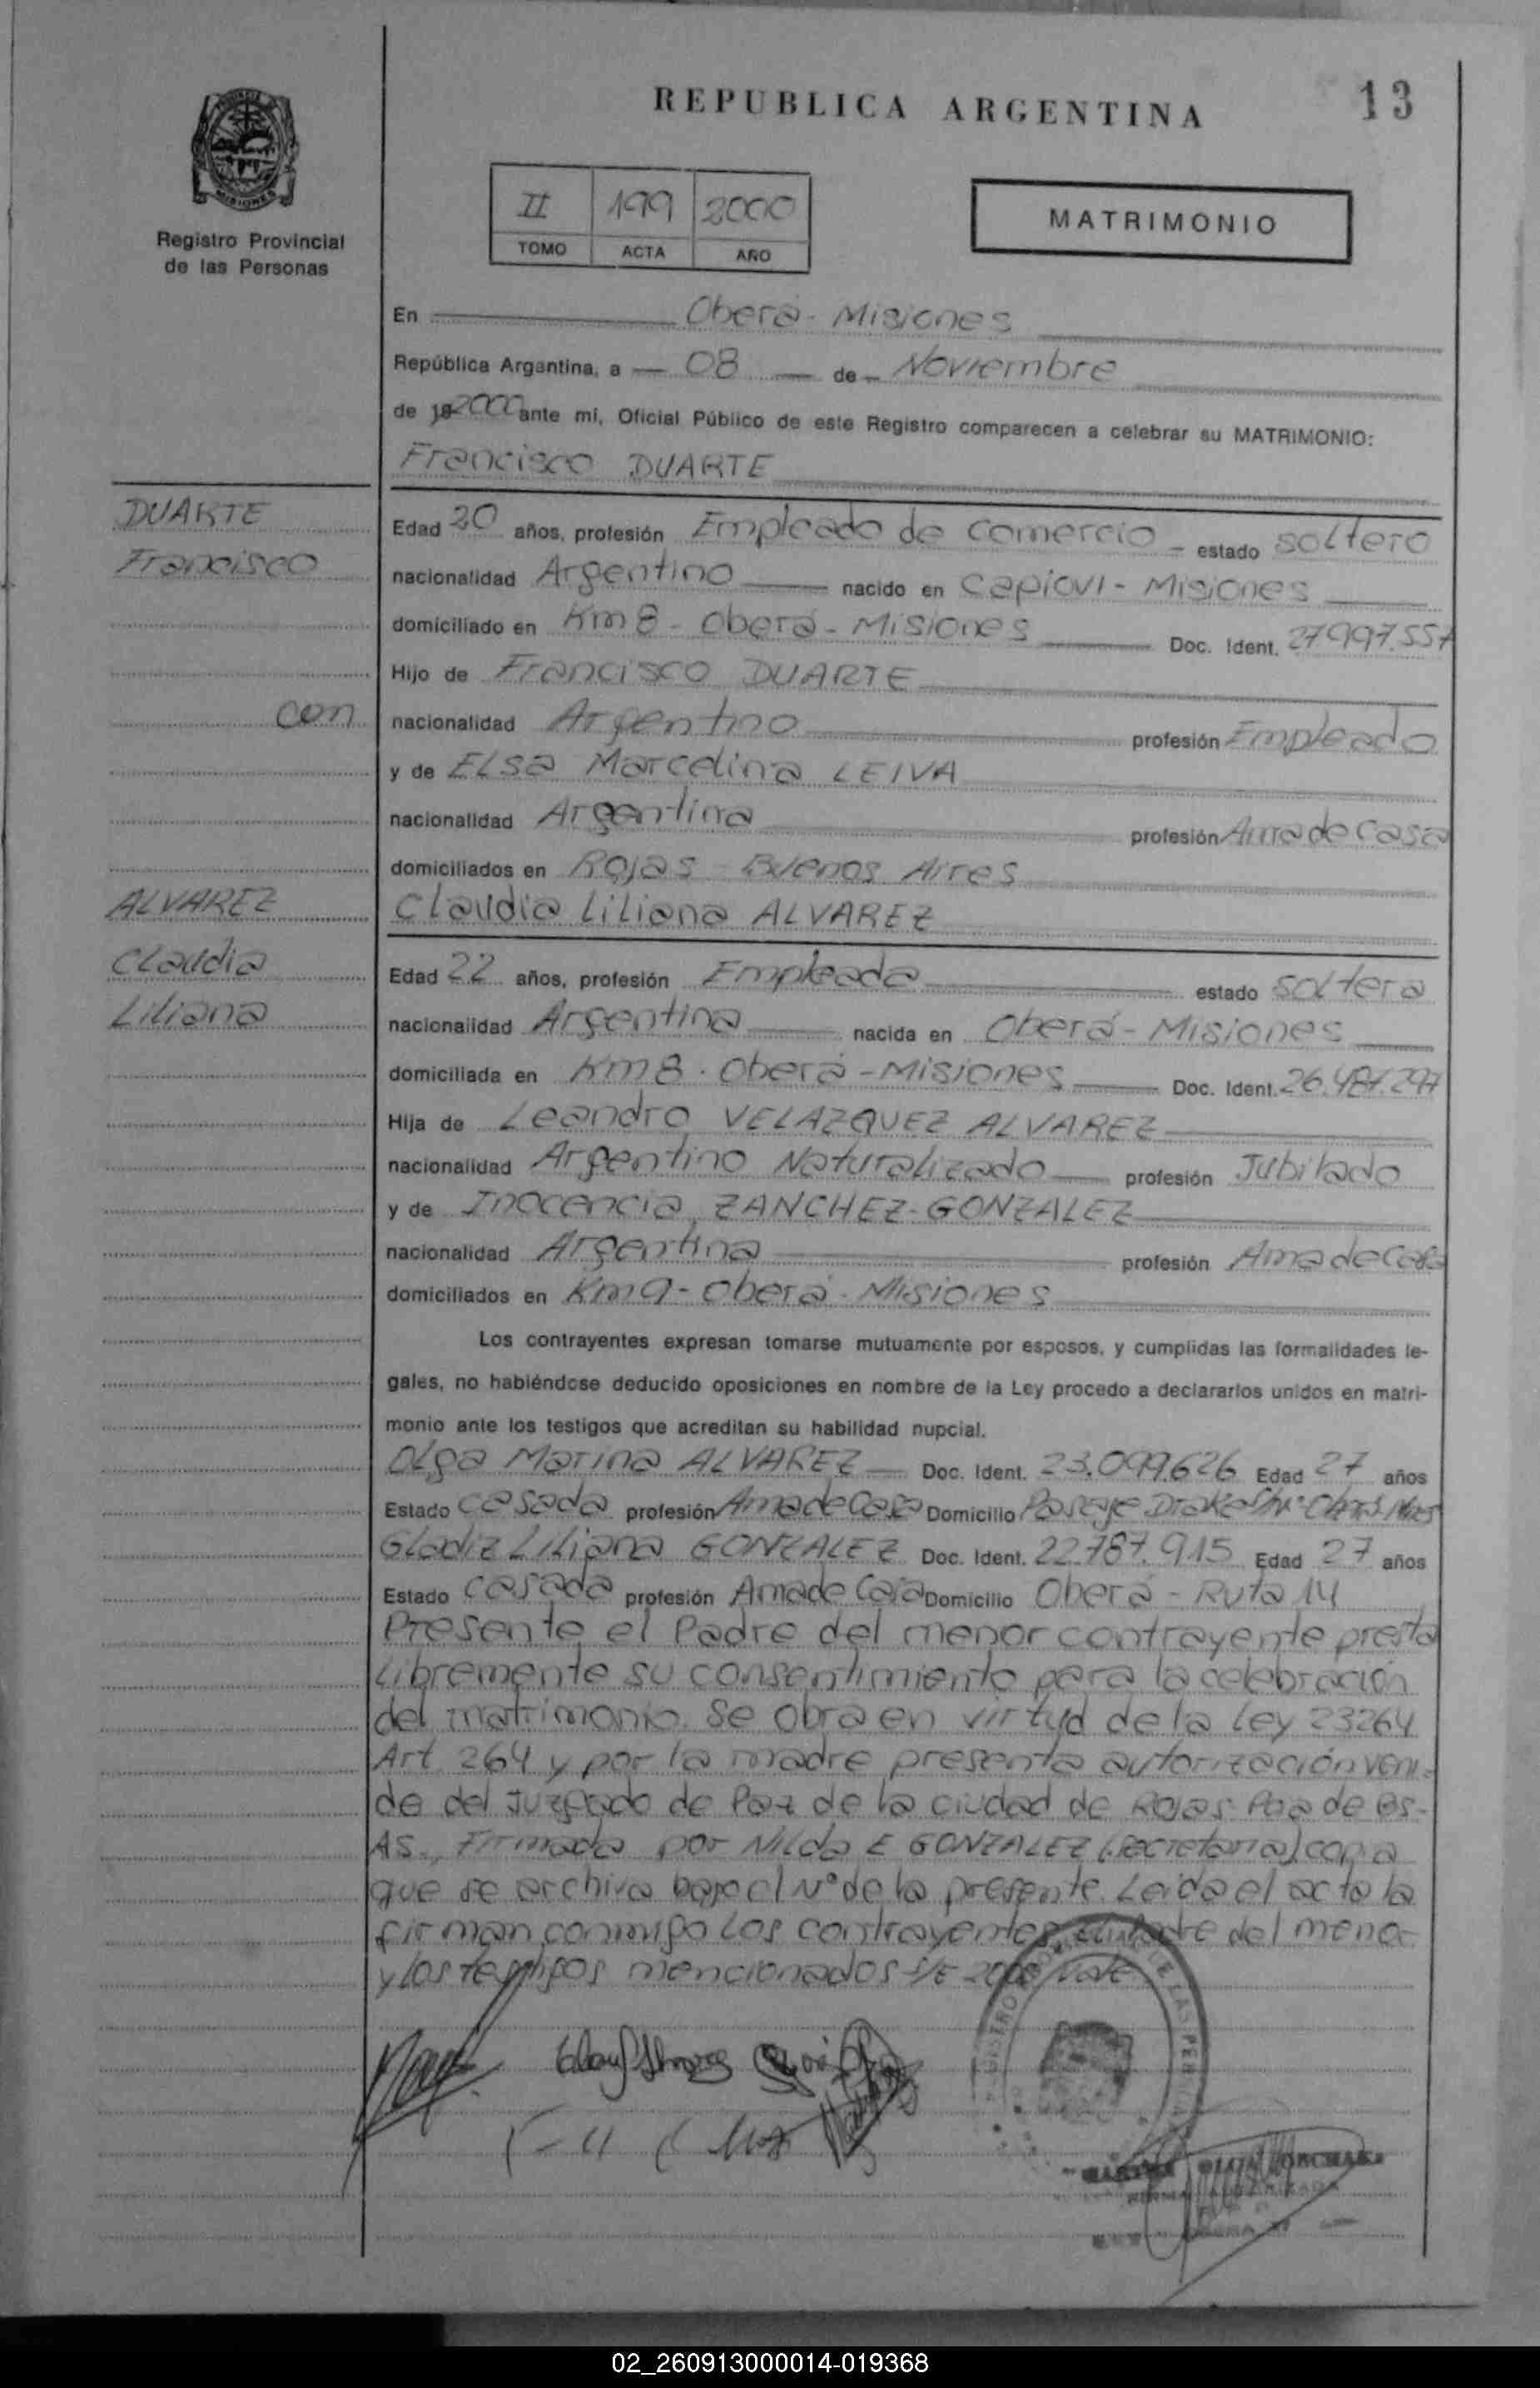 REPUBLICA ARGENTINA
13
Registro Provincial
de las Personas
II 199 2000
TOMO ACTA AÑO
MATRIMONIO
En Oberá - Misiones
República Argentina, a 08 de Noviembre
de 19 2000 ante mí, Oficial Público de este Registro comparecen a celebrar su MATRIMONIO:
Francisco DUARTE
DUARTE
Francisco
con
ALVAREZ
Claudia
Liliana
Edad 20 años, profesión Empleado de comercio estado soltero
nacionalidad Argentino nacido en Capiovi - Misiones
domiciliado en Km 8 - Oberá - Misiones Doc. Ident. 27997.557
Hijo de Francisco DUARTE
nacionalidad Argentino profesión Empleado
y de Elsa Marcelina LEIVA
nacionalidad Argentina profesión Ama de Casa
domiciliados en Rojas - Buenos Aires
Claudia Liliana ALVAREZ
Edad 22 años, profesión Empleada estado soltera
nacionalidad Argentina nacida en Oberá - Misiones
domiciliada en Km 8 - Oberá - Misiones Doc. Ident. 26.481.297
Hija de Leandro VELAZQUEZ ALVAREZ
nacionalidad Argentino Naturalizado profesión Jubilado
y de Inocencia ZANCHEZ-GONZALEZ
nacionalidad Argentina profesión Ama de Casa
domiciliados en Km 9 - Oberá - Misiones
Los contrayentes expresan tomarse mutuamente por esposos, y cumplidas las formalidades le-
gales, no habiéndose deducido oposiciones en nombre de la Ley procedo a declararlos unidos en matri-
monio ante los testigos que acreditan su habilidad nupcial.
Olga Marina ALVAREZ Doc. Ident. 23.099.626 Edad 27 años
Estado casada profesión Ama de Casa Domicilio Pasaje Drake S/Nº
Gladiz Liliana GONZALEZ Doc. Ident. 22.787.915 Edad 27 años
Estado casada profesión Ama de Casa Domicilio Oberá - Ruta 14
Presente el Padre del menor contrayente presta
libremente su consentimiento para la celebración
del matrimonio. Se obra en virtud de la Ley 23264
Art. 264 y por la madre presenta autorización veni-
da del Juzgado de Paz de la ciudad de Rojas Pcia de Bs-
As., Firmada por Nilda E GONZALEZ (Secretaria) copia
que se archiva bajo el Nº de la presente. Leida el acta la
firman conmigo los contrayentes, el Padre del menor
y los testigos mencionados S/E 2000 Vale
02_260913000014-019368